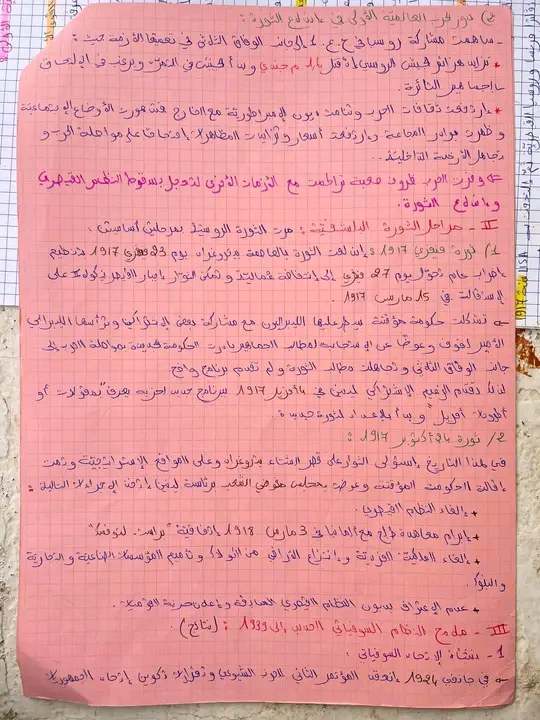 2) دور الحرب العالمية الأولى في اندلاع الثورة :
- ساهمت مشاركة روسيا في ح.ع.1 إلى جانب الوفاق الثلاثي في تعميق الأزمة حيث :
* الجيش الروسي
* إرتفعت نفقات الحرب وتنامت ديون الإمبراطورية مع الخارج فتدهورت الأوضاع الإجتماعية
و ظهرت بوادر المجاعة وارتفعت أسعار وتزايدت المظاهرات احتجاجا على مواصلة الحرب و
تجاهل الأزمة الداخلية.
وفرت الحرب ظروف صعبة تزامنت مع الأزمات الأخرى لتعجل بسقوط النظام القيصري
و اندلاع الثورة.
II - مراحل الثورة البلشفية : مرت الثورة الروسية بمرحلتين أساسيتين
1/ ثورة فيفري 1917 : اندلعت الثورة بالعاصمة بتروغراد يوم 23 فيفري 1917 بتنظيم
اضراب عام تحول يوم 27 فيفري إلى إنتفاضة عمالية و تمكن الثوار إجبار القيصر نيكولا على
الإستقالة في 15 مارس 1917.
تشكلت حكومة مؤقتة سيطر عليها الليبراليون مع مشاركة بعض الإشتراكيين وترأسها الليبرالي
الأمير لفوف وعوضا عن الإستجابة لمطالب الجماهير بادرت الحكومة الجديدة بمواصلة الحرب إلى
جانب الوفاق الثلاثي و تجاهلت مطالب الثورة و لم تقدم برنامج واضح
لذلك تقدم الزعيم الإشتراكي لينين في 4 أفريل 1917 ببرنامج جديد لحزبه يعرف "بمقولات أو
أطروحات أفريل" و بدأ بالإعداد لثورة جديدة
2/ ثورة 24 أكتوبر 1917 :
في هذا التاريخ إستولى الثوار على قصر الشتاء ببتروغراد وعلى المواقع الإستراتيجية و تمت
إقالة الحكومة المؤقتة وعوضت بمجلس مفوضي الشعب برئاسة لينين إتخذ الإجراءات التالية :
+ إلغاء النظام القيصري.
+ إبرام معاهدة صلح مع ألمانيا في 3 مارس 1918 إتفاقية "براست لتوفسك"
+ إلغاء الملكية الفردية و إنتزاع الأراضي من النبلاء و تأميم المؤسسات الصناعية و التجارية
و البنوك.
+ عدم الإعتراف بديون النظام القيصري السابقة و إعلان حرية القوميات.
III - ملامح النظام السوفياتي الجديد إلى 1939 : (نتائج)
1 - نشأة الإتحاد السوفياتي :
في جانفي 1924 إنعقد المؤتمر الثاني للحزب الشيوعي و تقرر تكوين إتحاد الجمهوريات
1917
USA